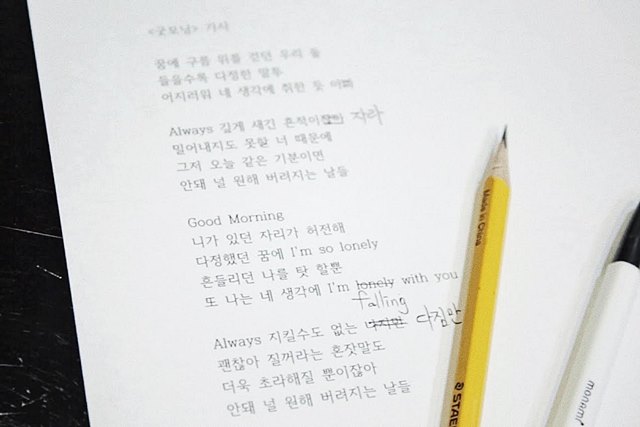 <굿모닝> 가사
꿈에 구름 위를 걷던 우리 둘
들을수록 다정한 말투
어지러워 네 생각에 취한 듯 이
Always 깊게 새긴 흔적이 자라
밀어내지도 못할 너 때문에
그저 오늘 같은 기분이면
안돼 널 원해 버려지는 날들
Good Morning
니가 있던 자리가 허전해
다정했던 꿈에 I'm so lonely
흔들리던 나를 탓 할뿐
또 나는 네 생각에 I'm lonely with you
falling
Always 지킬수도 없는 다짐만
괜찮아 질꺼라는 혼잣말도
더욱 초라해질 뿐이잖아
안돼 널 원해 버려지는 날들
Made in China
STAE
monami